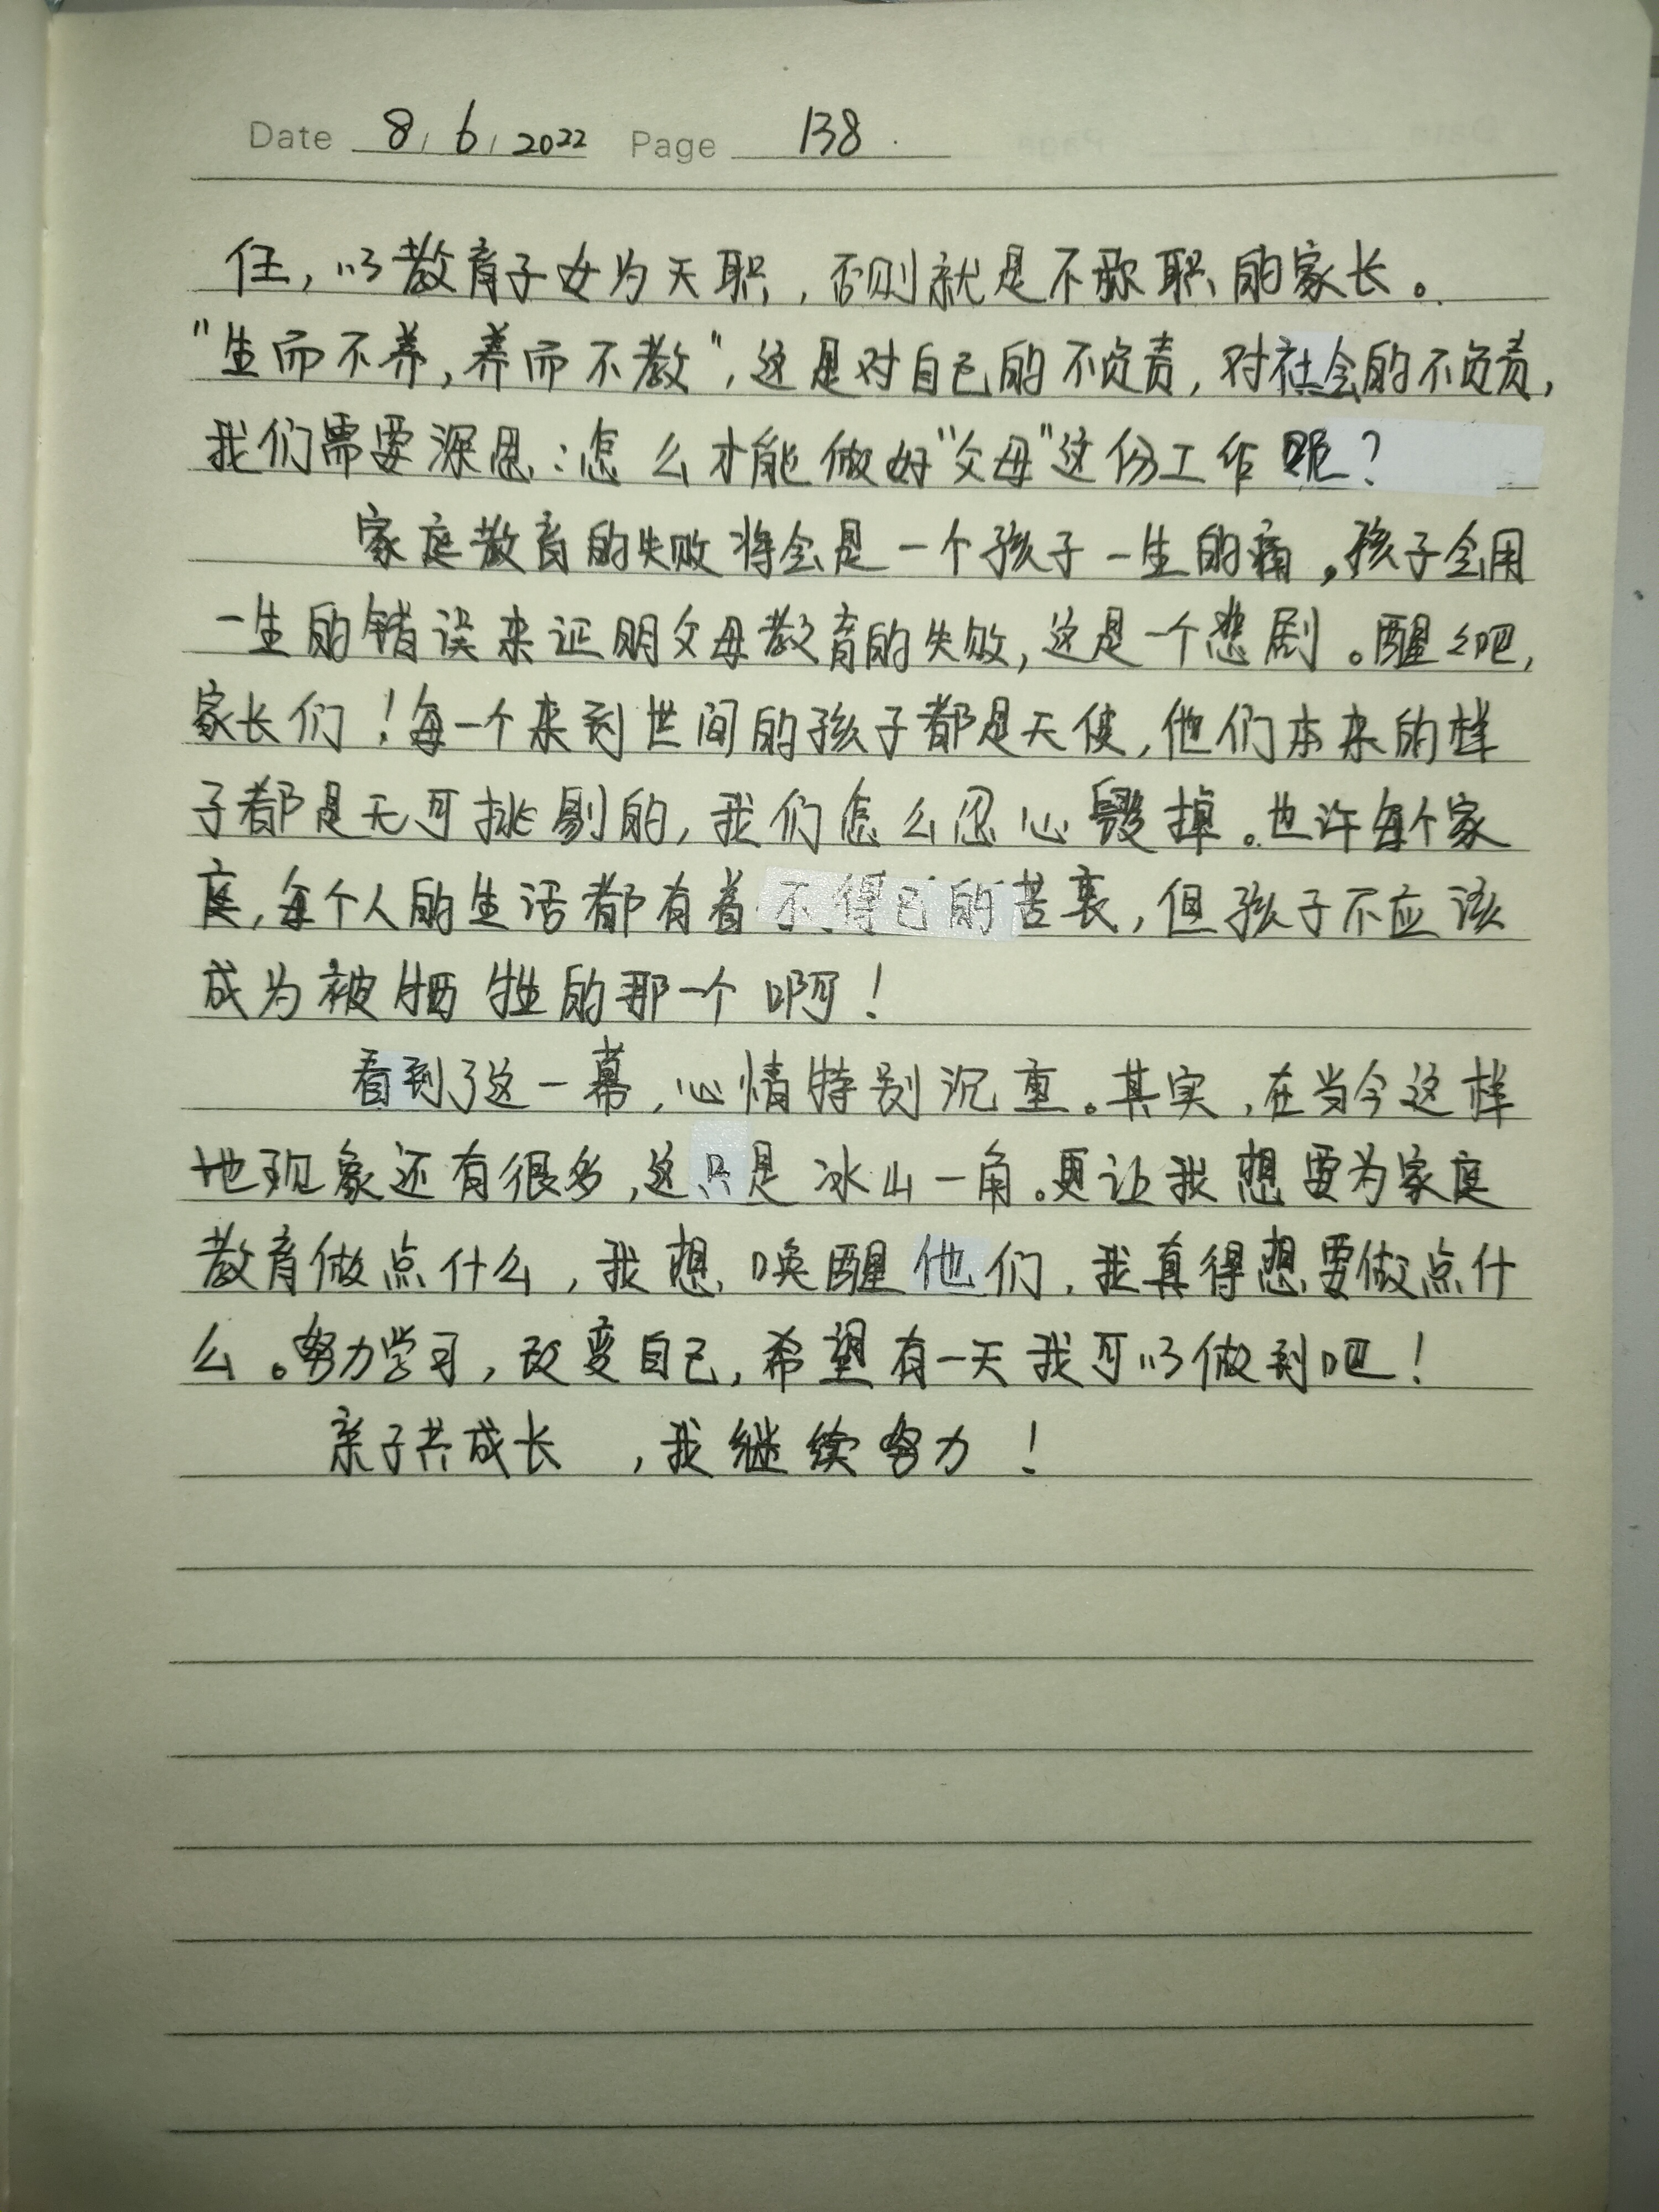 Date 8/6/2022 Page 138
任,以教育子女为天职,否则就是不称职的家长。
"生而不养,养而不教",这是对自己的不负责,对社会的不负责,
我们需要深思:怎么才能做好"父母"这份工作呢?
家庭教育的失败将会是一个孩子一生的痛,孩子会用
一生的错误来证明父母教育的失败,这是一个悲剧。醒醒吧,
家长们!每一个来到世间的孩子都是天使,他们本来的样
子都是无可挑剔的,我们怎么忍心毁掉。也许每个家
庭,每个人的生活都有着不得已的苦衷,但孩子不应该
成为被牺牲的那一个啊!
看到了这一幕,心情特别沉重。其实,在当今这样
地现象还有很多,这只是冰山一角。更让我想要为家庭
教育做点什么,我想唤醒他们,我真得想要做点什
么。努力学习,改变自己,希望有一天我可以做到吧!
亲子共成长,我继续努力!